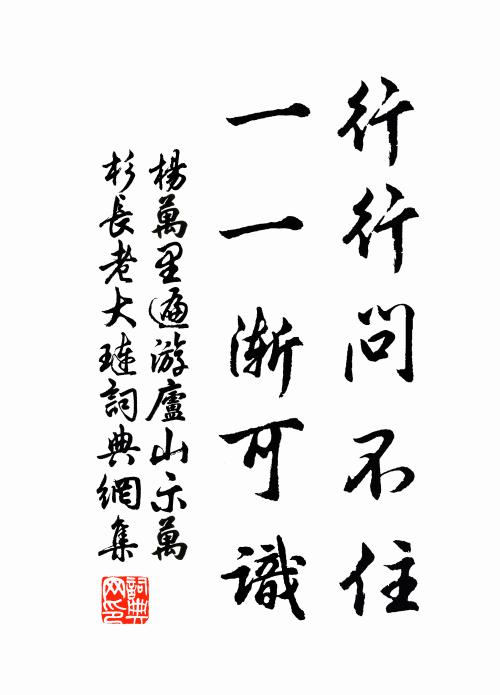 行行問不住
一一漸可識
楊萬里遍游廬山示萬
杉長老大璉詞典網集
詞典
网印